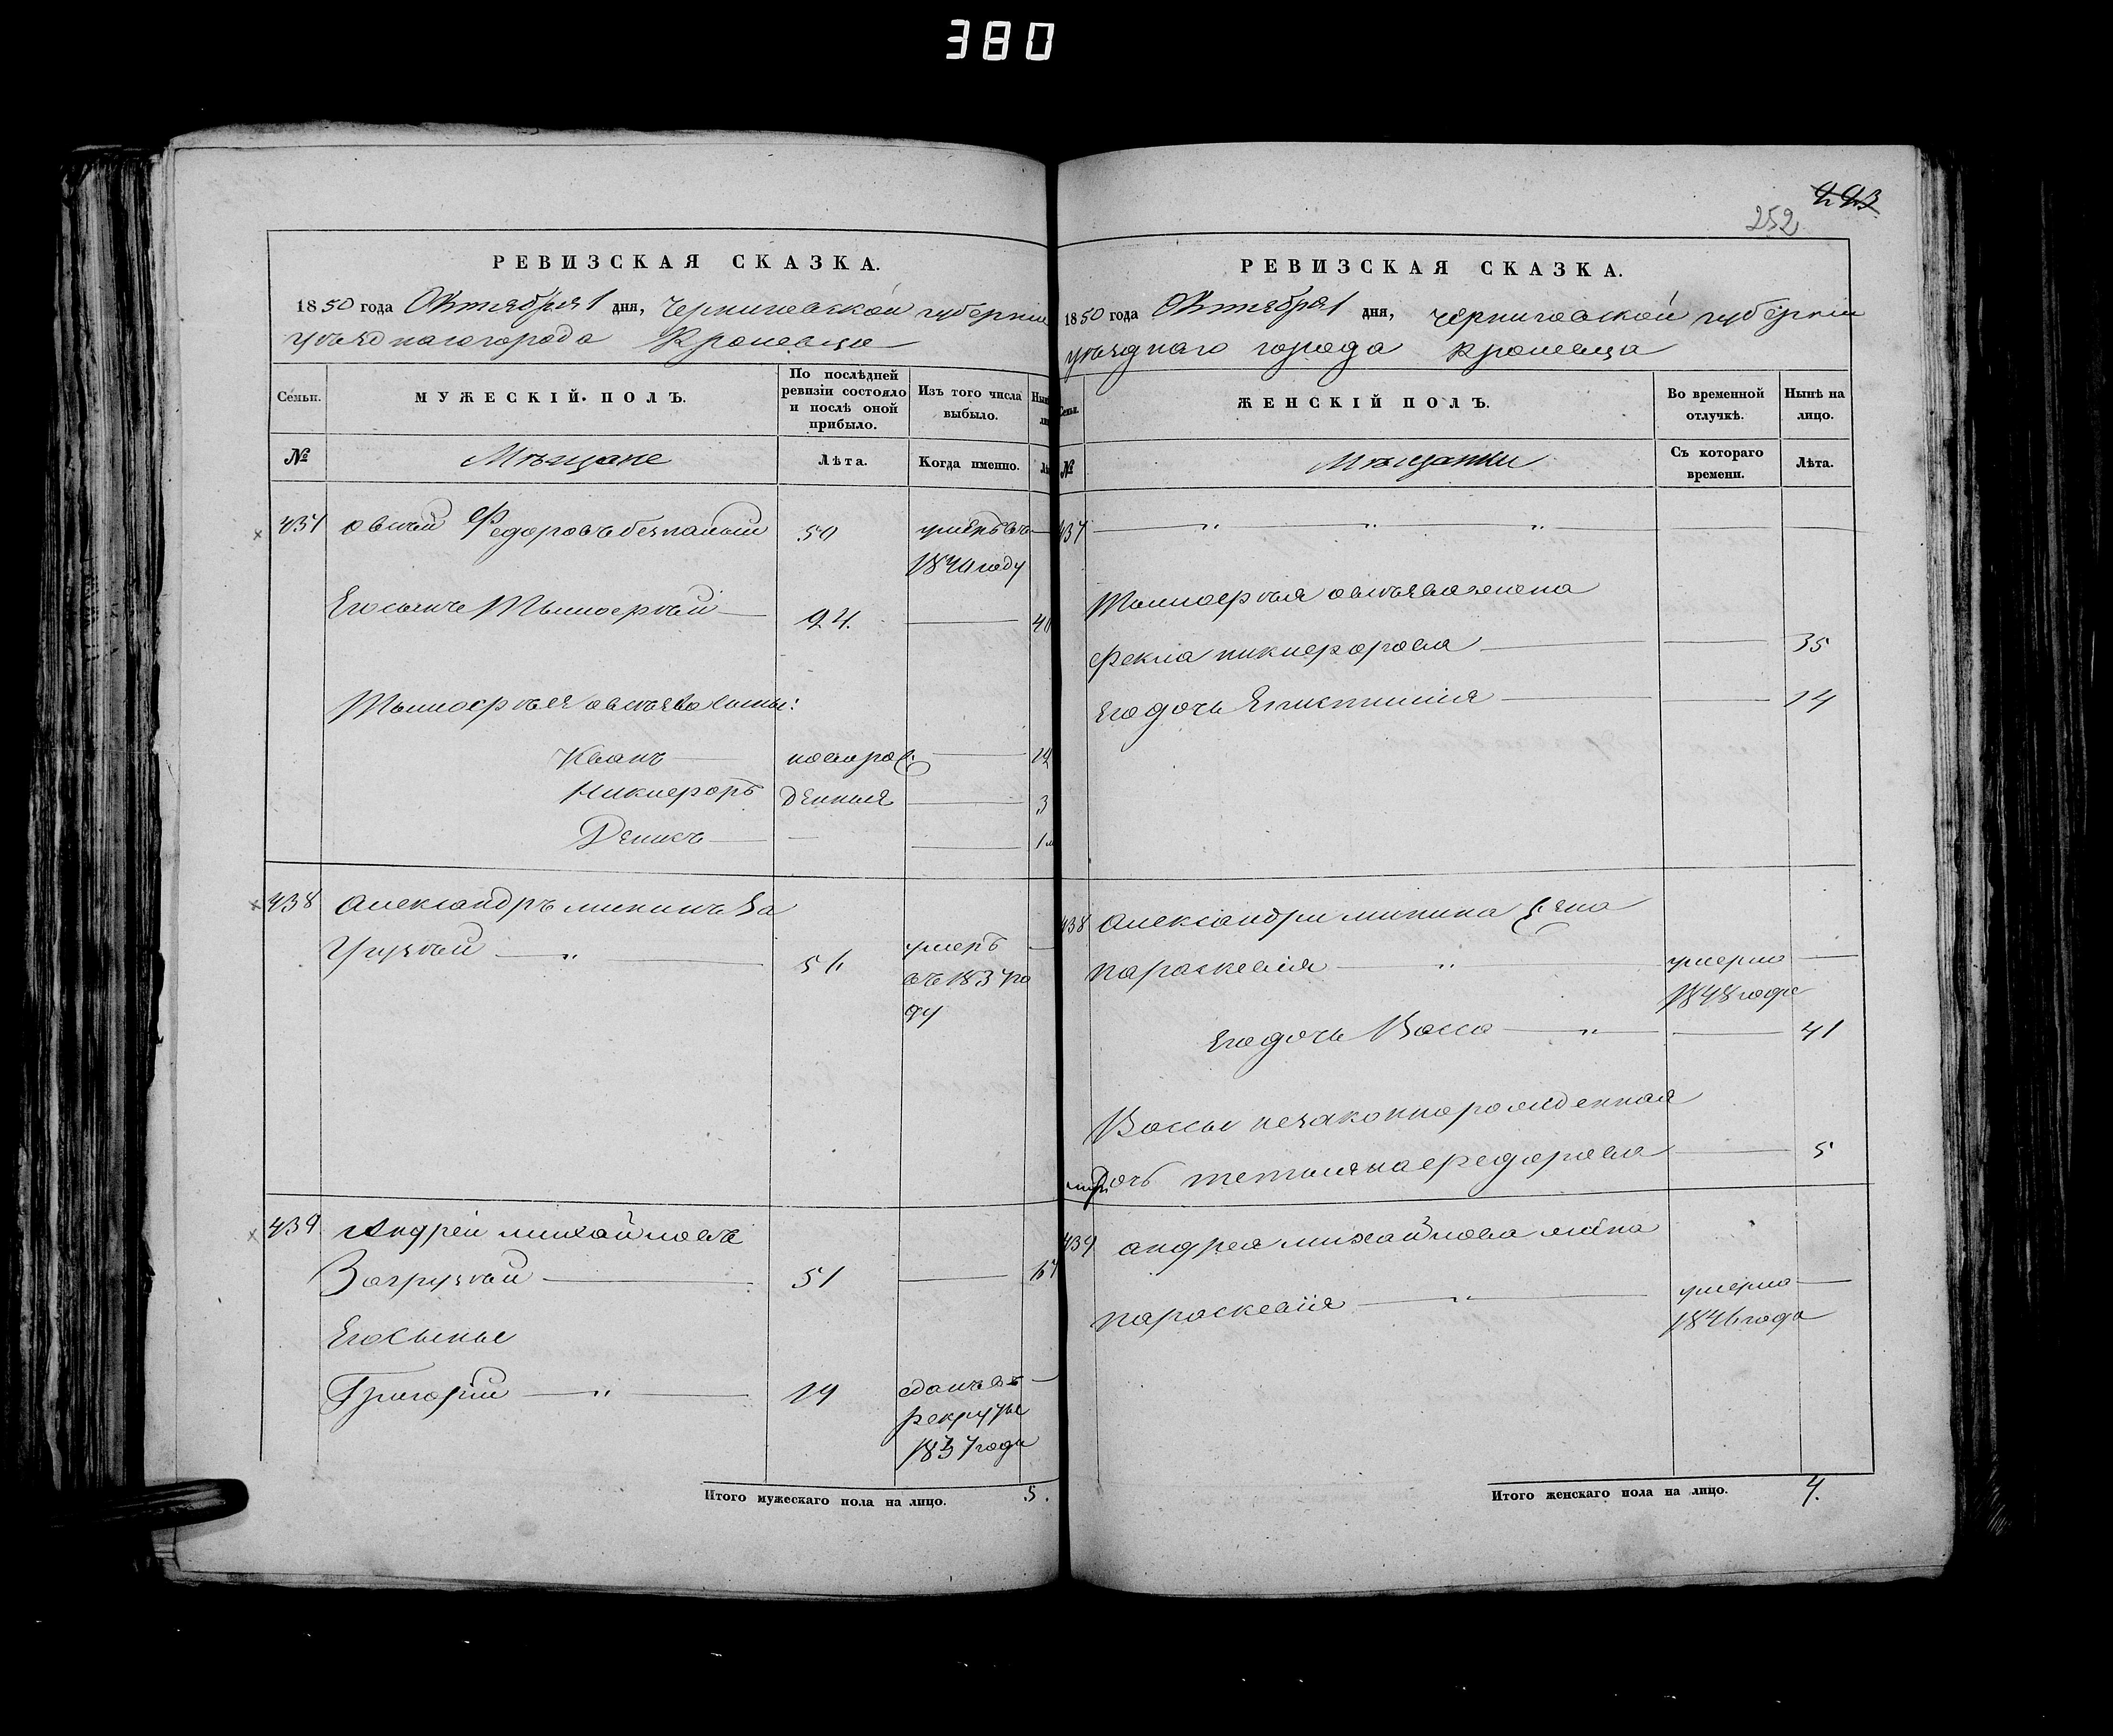 380
РЕВИЗСКАЯ СКАЗКА.
1850 года Октября 1 дня, Черниговской губернии
уѣзднаго города Кролевца
Семьи.
МУЖЕСКІЙ ПОЛЪ.
По послѣдней ревизіи состояло и послѣ оной прибыло.
Изъ того числа выбыло.
№
Мѣщане
Лѣта.
Когда именно.
437 Овсѣй Федоровъ Безпалый 50 умеръ въ
1840 году
Его сынъ Тимоѳей 24
Тимоѳея Овсѣева сыны:
Иванъ новорож 12
Никифоръ денныя 3
Денисъ 1
438 Александръ Мининъ За
грузкый 56 умеръ
въ 1837 го
ду
439 Андрей Михайловъ
Загрузкый 51
Его сыны
Григорій 19 сданъ въ
рекруты
1837 года
Итого мужескаго пола на лицо. 5.
252
223
РЕВИЗСКАЯ СКАЗКА.
1850 года Октября 1 дня, Черниговской губерніи
уѣзднаго города Кролевца
ЖЕНСКІЙ ПОЛЪ.
Во временной отлучкѣ.
Нынѣ на лицо.
№
Мѣщанки
Съ котораго времени.
Лѣта.
437
Тимоѳея Овсѣева жена
Фекла Никифорова 35
Его дочь 14
438 Александра Минина жена
Параскевія умерла
1848 года
Его дочь Васса 41
Вассы незаконнорожденная
дочь Тетьяна Федорова 5
439 Андрея Михайлова жена
Параскевія умерла
1846 года
Итого женскаго пола на лицо. 4.